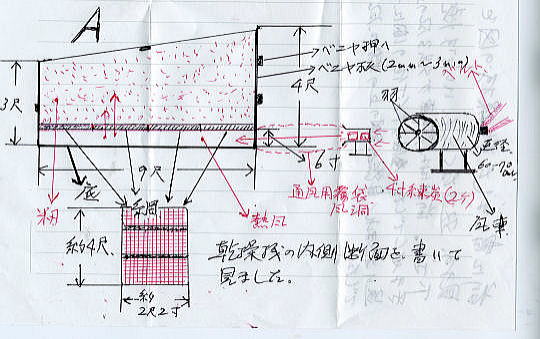 A
ベニヤ押へ
ベニヤ板(2mm〜3mm)
3尺
4尺
羽
ベルト
直径
60〜70
6寸
9尺
底
籾
網
熱風
通風用
風洞
練炭(2ケ)
風車
約4尺
約
2尺2寸
乾燥機の内側断面を、書いて
見ました。